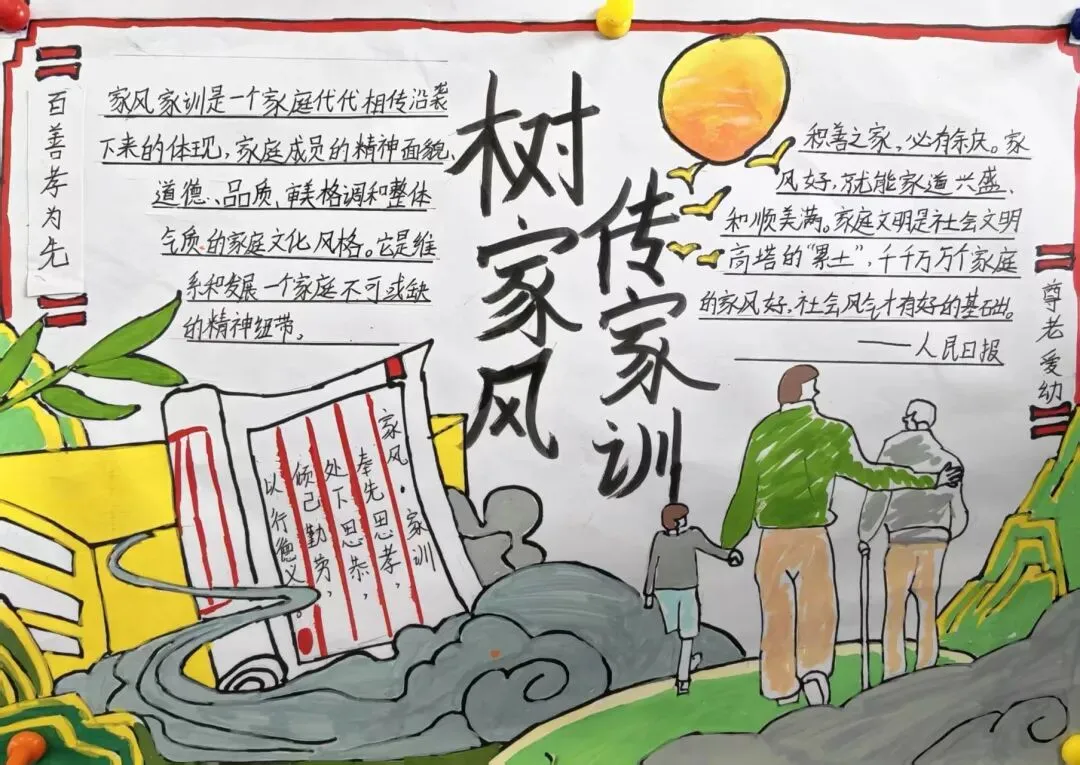 树家风
传家训
百善孝为先
家风家训是一个家庭代代相传沿袭
下来的体现，家庭成员的精神面貌、
道德、品质、审美格调和整体
气质的家庭文化风格。它是维
系和发展一个家庭不可或缺
的精神纽带。
积善之家，必有余庆。家
风好，就能家道兴盛、
和顺美满。家庭文明是社会文明
高塔的“累土”，千千万万个家庭
的家风好，社会风气才有好的基础。
——人民日报
尊老爱幼
家风·家训
奉先思孝，
处下思恭，
倾己勤劳，
以行德义。